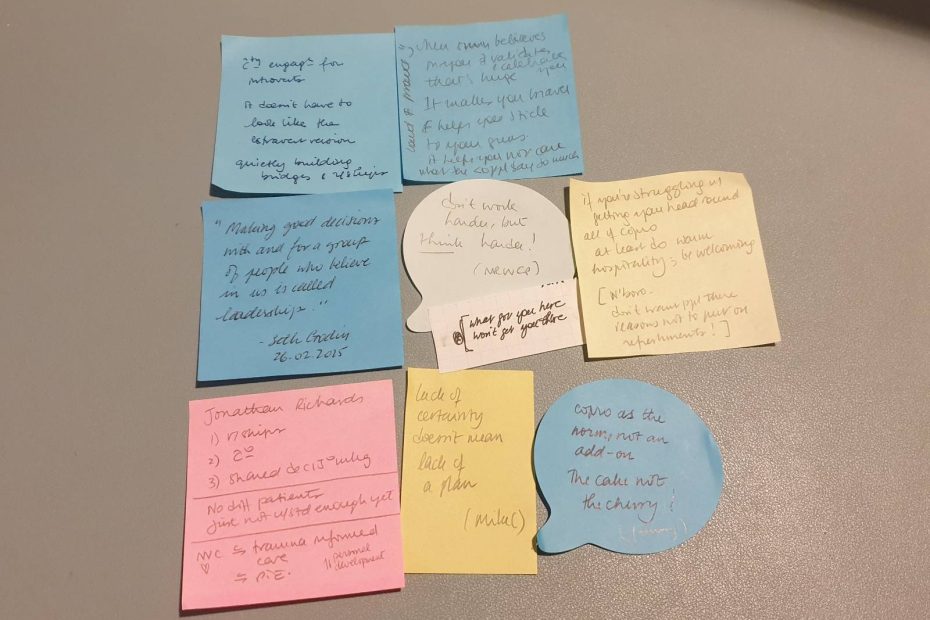 engagt for
introverts
it doesn't have to
look like the
extravert version
quietly building
bridges & r/ships
loud & proud
when believes
in you & validates
& celebrates
that's huge you
It makes you braver
& helps you stick
to your guns.
it helps you not care
what the say so much
"Making good decisions
with and for a group
of people who believe
in us is called
leadership."
- Seth Godin
26.02.2015
don't work
harder, but
think harder!
(Newca)
[what got you here
won't get you there
if you're struggling w
getting your head round
all of copro
at least do warm
hospitality & be welcoming
[N'boro.
don't want ppl there
reasons not to put on
refreshments!]
Jonathan Richards
1) r/ships
2)
3) shared mkg
No diff patients
Just not u/std enough yet
NVC trauma informed
care
personal
development
P.I.E.
lack of
certainty
doesn't mean
lack of
a plan
copro as the
norm, not an
add-on
The cake not
the cherry!